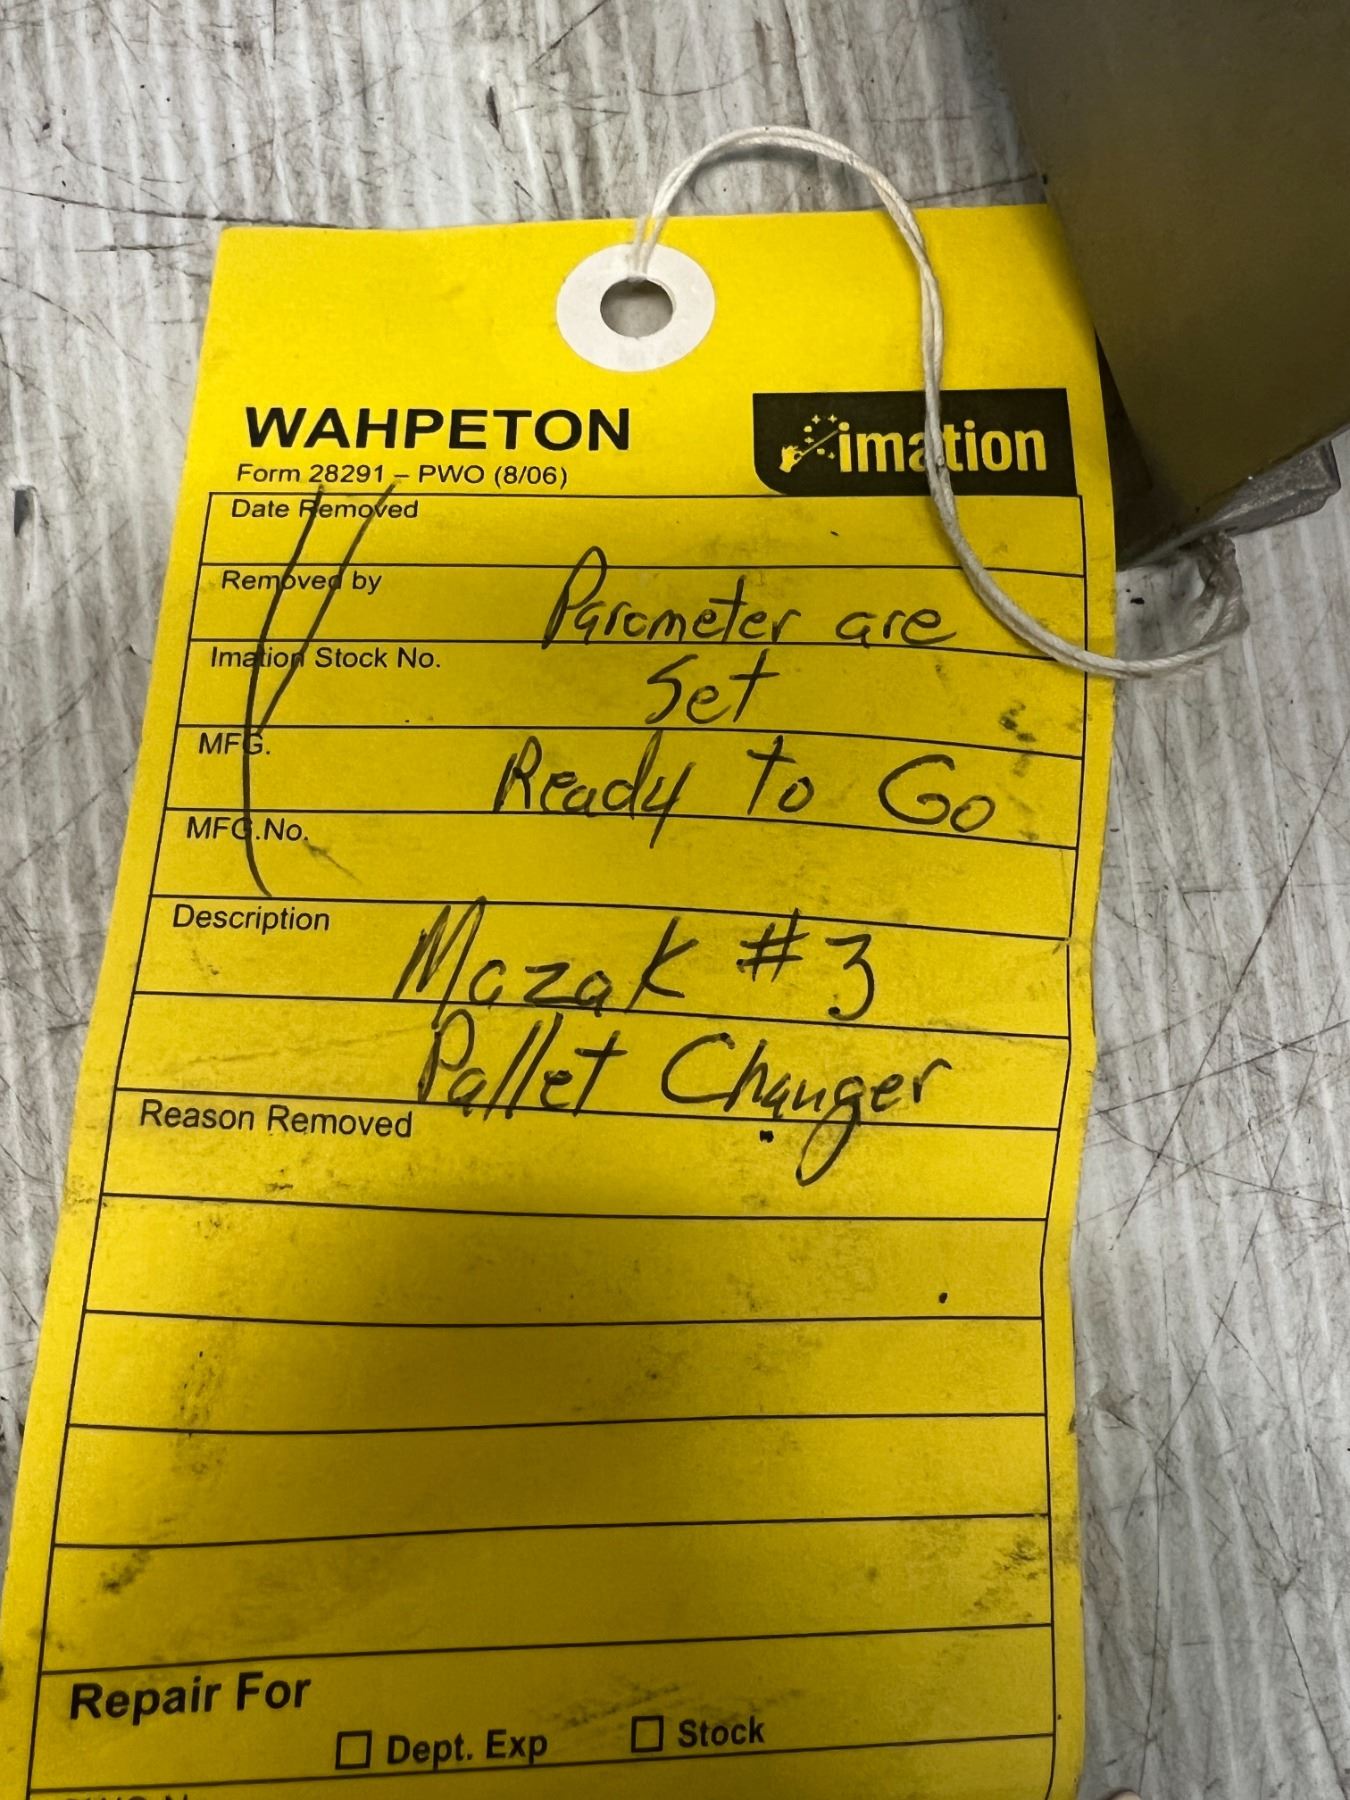 WAHPETON
imation
Form 28291 – PWO (8/06)
Date Removed
Removed by
Parometer are
Imation Stock No.
Set
MFG.
Ready to Go
MFG.No.
Description
Mazak #3
Pallet Changer
Reason Removed
Repair For
Dept. Exp
Stock